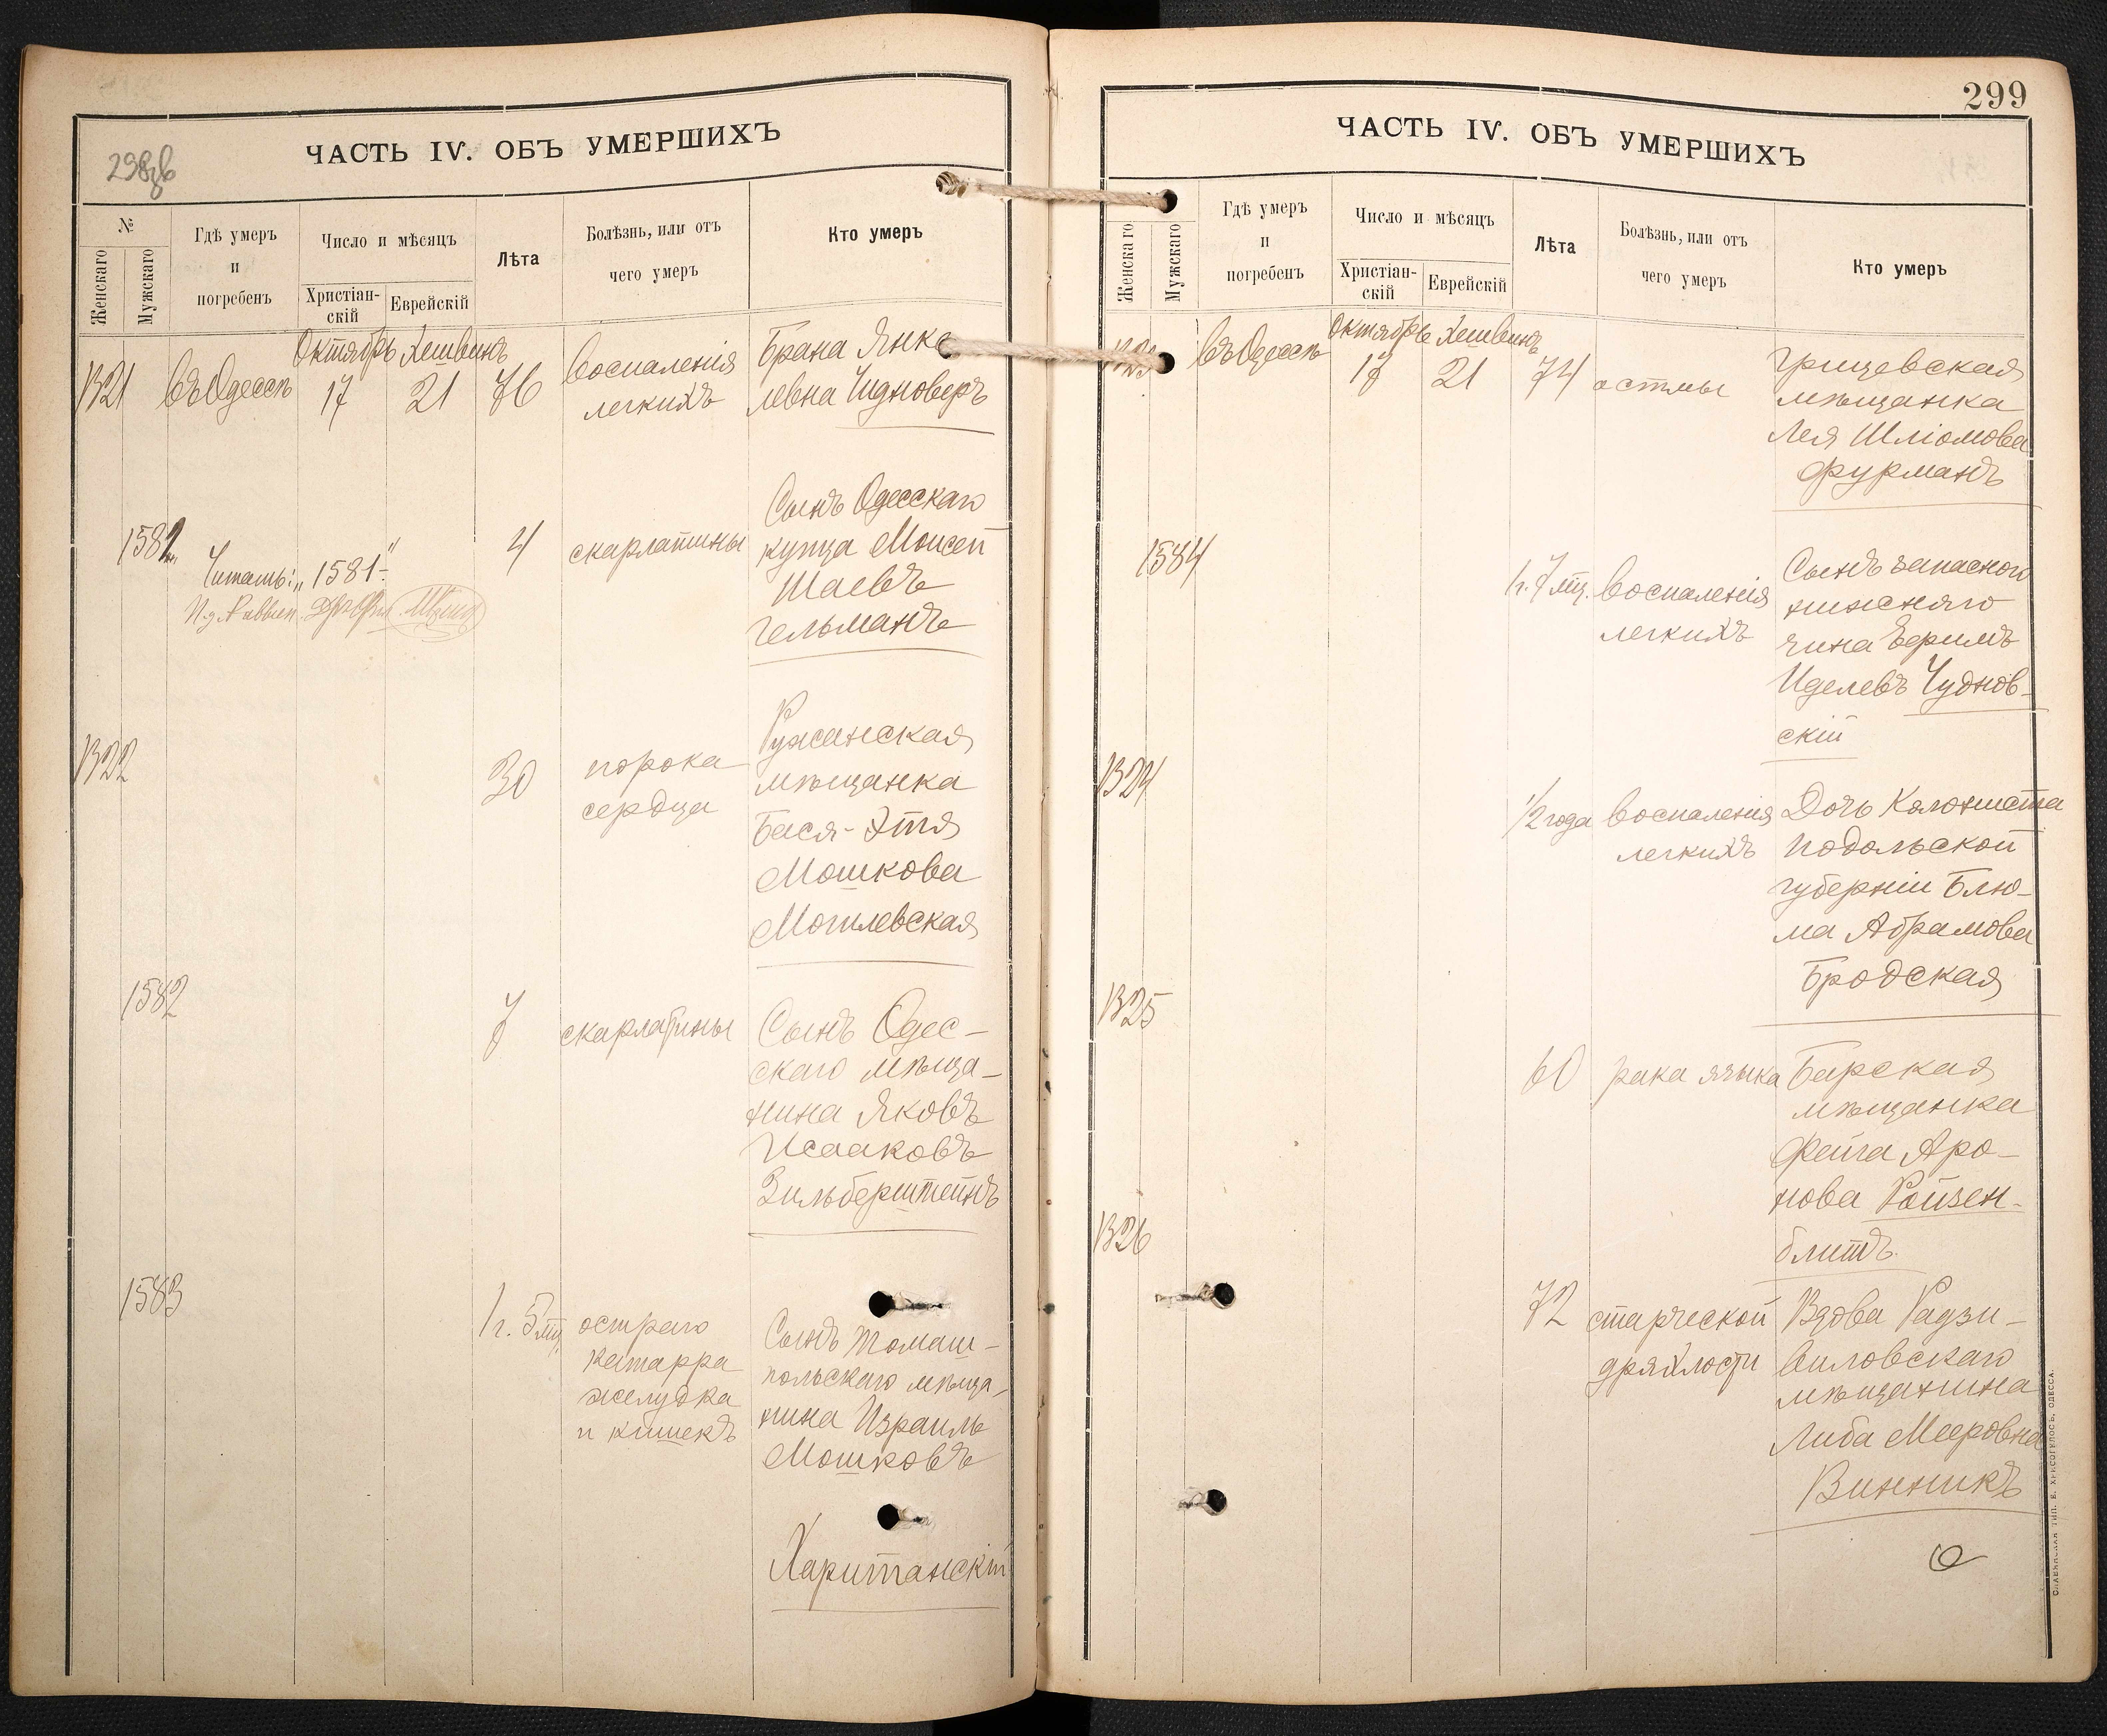 298об
ЧАСТЬ IV. ОБЪ УМЕРШИХЪ
№
Женскаго
Мужскаго
Гдѣ умеръ
и
погребенъ
Число и мѣсяцъ
Христіан-
скій
Еврейскій
Лѣта
Болѣзнь, или отъ
чего умеръ
Кто умеръ
Октябрь Хешвинъ
1321 въ Одессѣ 17 21 76
воспаленія
легкихъ
Брана Янке
левна Чудноверъ
1581
4
скарлатины
Сынъ Одесскаго
купца Моисей
Шаевъ
Гельманъ
Читать: „1581“.
И. д. Раввин.
1322
30
порока
сердца
Ружанская
мѣщанка
Бася-Этя
Мошкова
Могилевская
1582
7
скарлатины
Сынъ Одес-
скаго мѣща-
нина Яковъ
Исааковъ
Зильберштейнъ
1583
1 г. 5 мц.
остраго
катарра
желудка
и кишекъ
Сынъ Томаш-
польскаго мѣща-
нина Израиль
Мошковъ
Хаританскій
299
ЧАСТЬ IV. ОБЪ УМЕРШИХЪ
Женскаго
Мужскаго
Гдѣ умеръ
и
погребенъ
Число и мѣсяцъ
Христіан-
скій
Еврейскій
Лѣта
Болѣзнь, или отъ
чего умеръ
Кто умеръ
Октябрь Хешвинъ
1323 въ Одессѣ 17 21 74 астмы
Грицевская
мѣщанка
Лея Шліомова
Фурманъ
1584
1 г. 7 мц.
воспаленія
легкихъ
Сынъ запасного
нижняго
чина Ефримъ
Иделевъ Чуднов-
скій
1324
1/2 года
воспаленія
легкихъ
Дочь Колониста
Подольской
губерніи Блю-
ма Абрамова
Бродская
1325
60
рака языка
Барская
мѣщанка
Фейга Аро-
нова Ройзен-
блитъ
1326
72
старческой
дряхлости
Вдова Радзи-
виловскаго
мѣщанина
Либа Мееровна
Винникъ
СЛАВЯНСКАЯ ТИП. Е. ХРИСОГЕЛОСЪ, ОДЕССА.